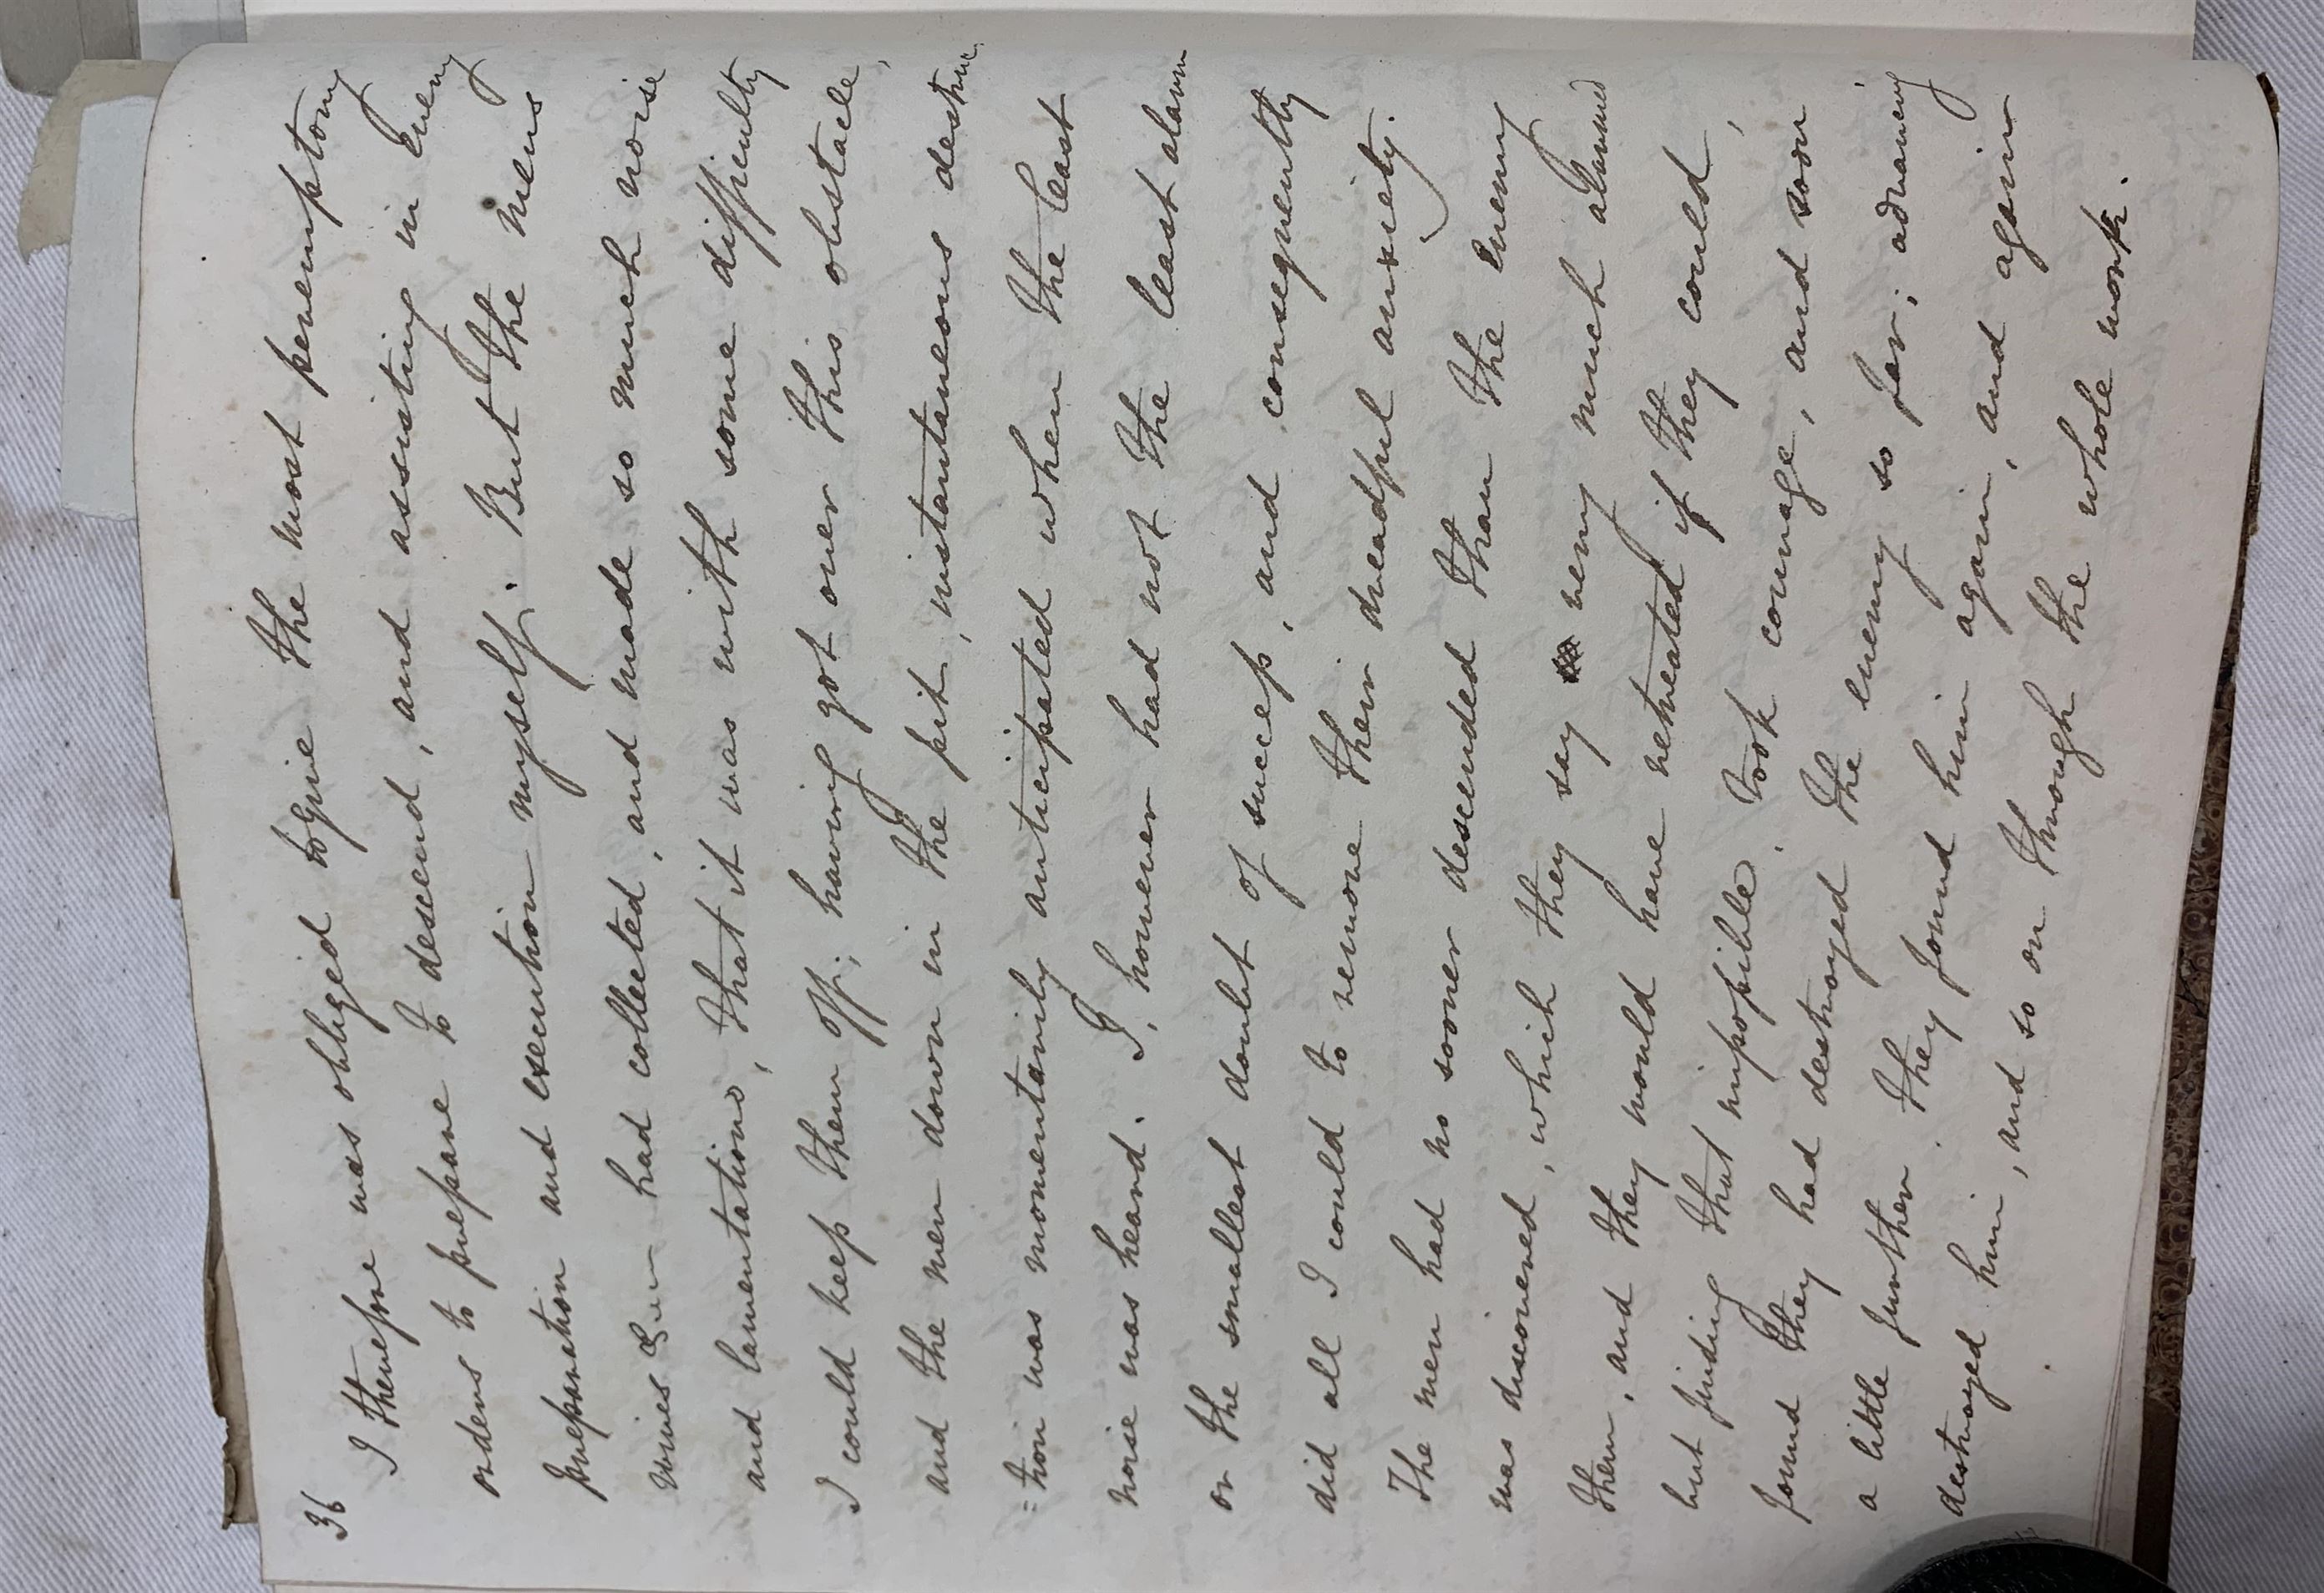 36
I therefore was obliged to give the most peremptory
orders to prepare to descend, and assisting in every
preparation and execution myself. But the mens
wives &c— had collected, and made so much noise
and lamentations, that it was with some difficulty
I could keep them off; having got over this obstacle,
and the men down in the pit, instantaneous destruc
=tion was momentarily anticipated when the least
noise was heard. I, however had not the least alarm
or the smallest doubt of success, and consequently
did all I could to remove their dreadful anxiety.
The men had no sooner descended than the enemy
was discovered, which they say very much alarmed
them, and they would have retreated if they could,
but finding that impossible, took courage, and soon
found they had destroyed the enemy so far; advancing
a little further, they found him again, and again
destroyed him, and so on through the whole work.